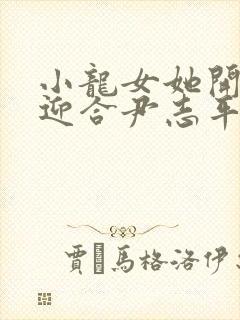 小龍女她開
迎合尹志平
賈·馬格洛伊